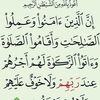 أعوذ بالله من الشيطان الرجيم
إِنَّ الَّذِينَ ءَامَنُوا وَعَمِلُوا
الصَّٰلِحَٰتِ وَأَقَامُوا الصَّلَوٰةَ
وَءَاتَوُا الزَّكَوٰةَ لَهُمْ أَجْرُهُمْ
عِندَ رَبِّهِمْ وَلَا خَوْفٌ عَلَيْهِمْ